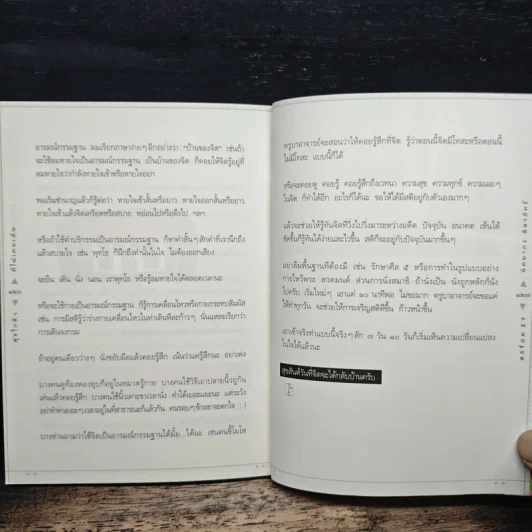 อารมณ์กรรมฐาน ผมเรียกภาษาง่ายๆ อีกอย่างว่า "บ้านของจิต" เช่นถ้า
จะใช้ลมหายใจเป็นอารมณ์กรรมฐาน เป็นบ้านของจิต ก็คอยให้จิตรู้อยู่ที่
ลมหายใจว่ากำลังหายใจเข้าหรือหายใจออก
พอเริ่มชำนาญแล้วก็รู้ต่อว่า หายใจเข้าสั้นหรือยาว หายใจออกสั้นหรือยาว
หายใจเข้าแล้วจิตเครียดหรือสบาย หย่อนไปหรือตึงไป ฯลฯ
หรือถ้าใช้คำบริกรรมเป็นอารมณ์กรรมฐาน ก็หาคำสั้นๆ สักคำที่เรานึกถึง
แล้วสบายใจ เช่น พุทโธ ก็นึกถึงคำนั้นในใจ ไม่ต้องออกเสียง
จะยืน เดิน นั่ง นอน เราพุทโธ หรือรู้ลมหายใจได้ตลอดเวลานะ
หรือจะใช้กายเป็นอารมณ์กรรมฐาน ก็รู้การเคลื่อนไหวหรือกายกระทบสัมผัส
เช่น การมีสติรู้ว่าร่างกายเคลื่อนไหวในท่าเดินทีละก้าวๆ นั่นแหละเรียกว่า
การเดินจงกรม
ถ้าอยู่คนเดียวว่างๆ นั่งขยับมือแล้วคอยรู้สึก เน้นว่าแค่รู้สึกนะ อย่าเพ่ง
บางคนดูท้องพองยุบก็อยู่ในหมวดรู้กาย บางคนใช้วิธีเอาปลายนิ้วถูกัน
เล่นแล้วคอยรู้สึก บางคนใช้นิ้วเคาะขาเวลานั่ง ทำได้เยอะแยะนะ แต่ระวัง
อย่าทำท่าแยะๆ เวลาอยู่ในที่สาธารณะก็แล้วกัน คนรอบๆ ข้างเขาจะตกใจ :)
บางท่านถามว่าใช้จิตเป็นอารมณ์กรรมฐานได้มั้ย ได้นะ เช่นคนขี้โมโห
ครูบาอาจารย์จะสอนว่าให้คอยรู้สึกที่จิต รู้ว่าตอนนี้จิตมีโทสะหรือตอนนี้
ไม่มีโทสะ แบบนี้ก็ได้
หรือจะคอยดู คอยรู้ คอยรู้สึกถึงเวทนา ความสุข ความทุกข์ ความเฉยๆ
ในจิต ก็ทำได้อีก อะไรก็ได้นะ ขอให้ได้มีสติอยู่กับตัวเองมากๆ
แล้วจะช่วยให้รู้ทันจิตที่วิ่งไปวิ่งมาระหว่างอดีต ปัจจุบัน อนาคต เห็นได้
ชัดขึ้นก็รู้ทันได้ง่ายและไวขึ้น สติก็จะอยู่กับปัจจุบันมากขึ้นๆ
อย่าลืมพื้นฐานที่ต้องมี เช่น รักษาศีล ๕ หรือการทำในรูปแบบอย่าง
การไหว้พระ สวดมนต์ ส่วนการนั่งสมาธิ ถ้านั่งเป็น นั่งถูกหลักก็นั่ง
ไปครับ เริ่มใหม่ๆ เอาแค่ ๑๐ นาทีพอ ไม่ขอมาก ครูบาอาจารย์จะขอแค่
ให้ทำทุกวัน จะช่วยให้การเจริญสติดีขึ้น ก้าวหน้าขึ้น
เอาเข้าจริงทำแบบนี้จริงๆ สัก ๗ วัน ๑๐ วันก็เริ่มเห็นความเปลี่ยนแปลง
ในใจได้แล้วนะ
สุขสันต์วันที่จิตจะได้กลับบ้านครับ